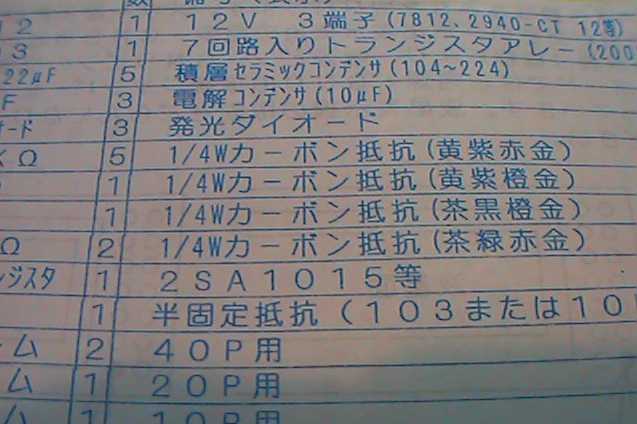 数
12 1 12V 3端子(7812、2940-CT 12等)
03 1 7回路入りトランジスタアレー(200
22μF 5 積層セラミックコンデンサ(104~224)
F 3 電解コンデンサ(10μF)
オード 3 発光ダイオード
KΩ 5 1/4Wカーボン抵抗(黄紫赤金)
1 1/4Wカーボン抵抗(黄紫橙金)
1 1/4Wカーボン抵抗(茶黒橙金)
Ω 2 1/4Wカーボン抵抗(茶緑赤金)
ンジスタ 1 2SA1015等
1 半固定抵抗(103または10
ーム 2 40P用
ム 1 20P用
ム 1 10P用